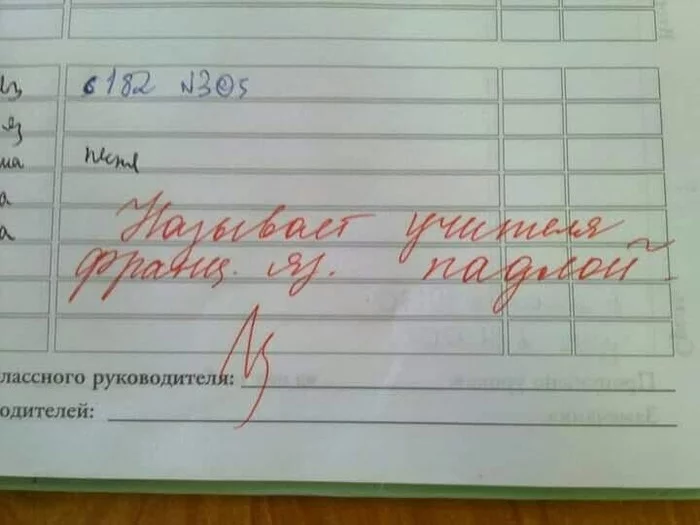 яз с 182 №3 5
яз
ма песня
а
Называет учителя
а
франц. яз. падлой
лассного руководителя:
одителей: